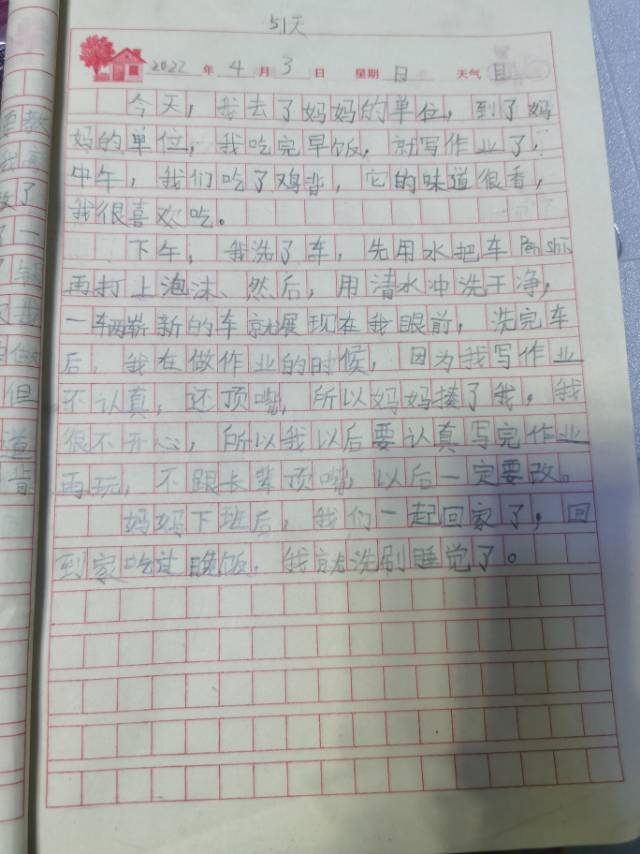 51天
2022 年 4 月 3 日 星期 日 天气
今天，我去了妈妈的单位，到了妈
妈的单位，我吃完早饭，就写作业了，
中午，我们吃了鸡背，它的味道很看，
我很喜欢吃。
下午，我洗了车，先用水把车 Pēn shī
再打上泡沫、然后，用清水冲洗干净，
一辆崭新的车就展现在我眼前，洗完车
后，我在做作业的时候，因为我写作业
不认真，还顶嘴，所以妈妈揍了我，我
很不开心，所以我以后要认真写完作业
再玩，不跟长辈顶嘴，以后一定要改。
妈妈下班后，我们一起回家了，回
到家吃过晚饭，我就洗刷睡觉了。